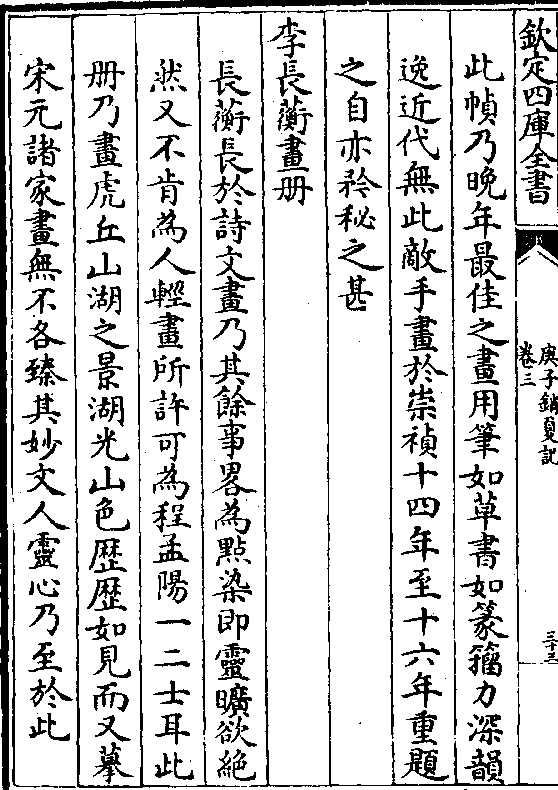 欽定四庫全書
庚子銷夏記
卷三
三十三
此幀乃晚年最佳之畫用筆如草書如篆籀力深韻
逸近代無此敵手畫於崇禎十四年至十六年重題
之自亦矜秘之甚
李長蘅畫册
長蘅長於詩文畫乃其餘事畧為點染即靈曠欲絶
然又不肯為人輕畫所許可為程孟陽一二士耳此
册乃畫虎丘山湖之景湖光山色歴歴如見而又摹
宋元諸家畫無不各臻其妙文人靈心乃至於此